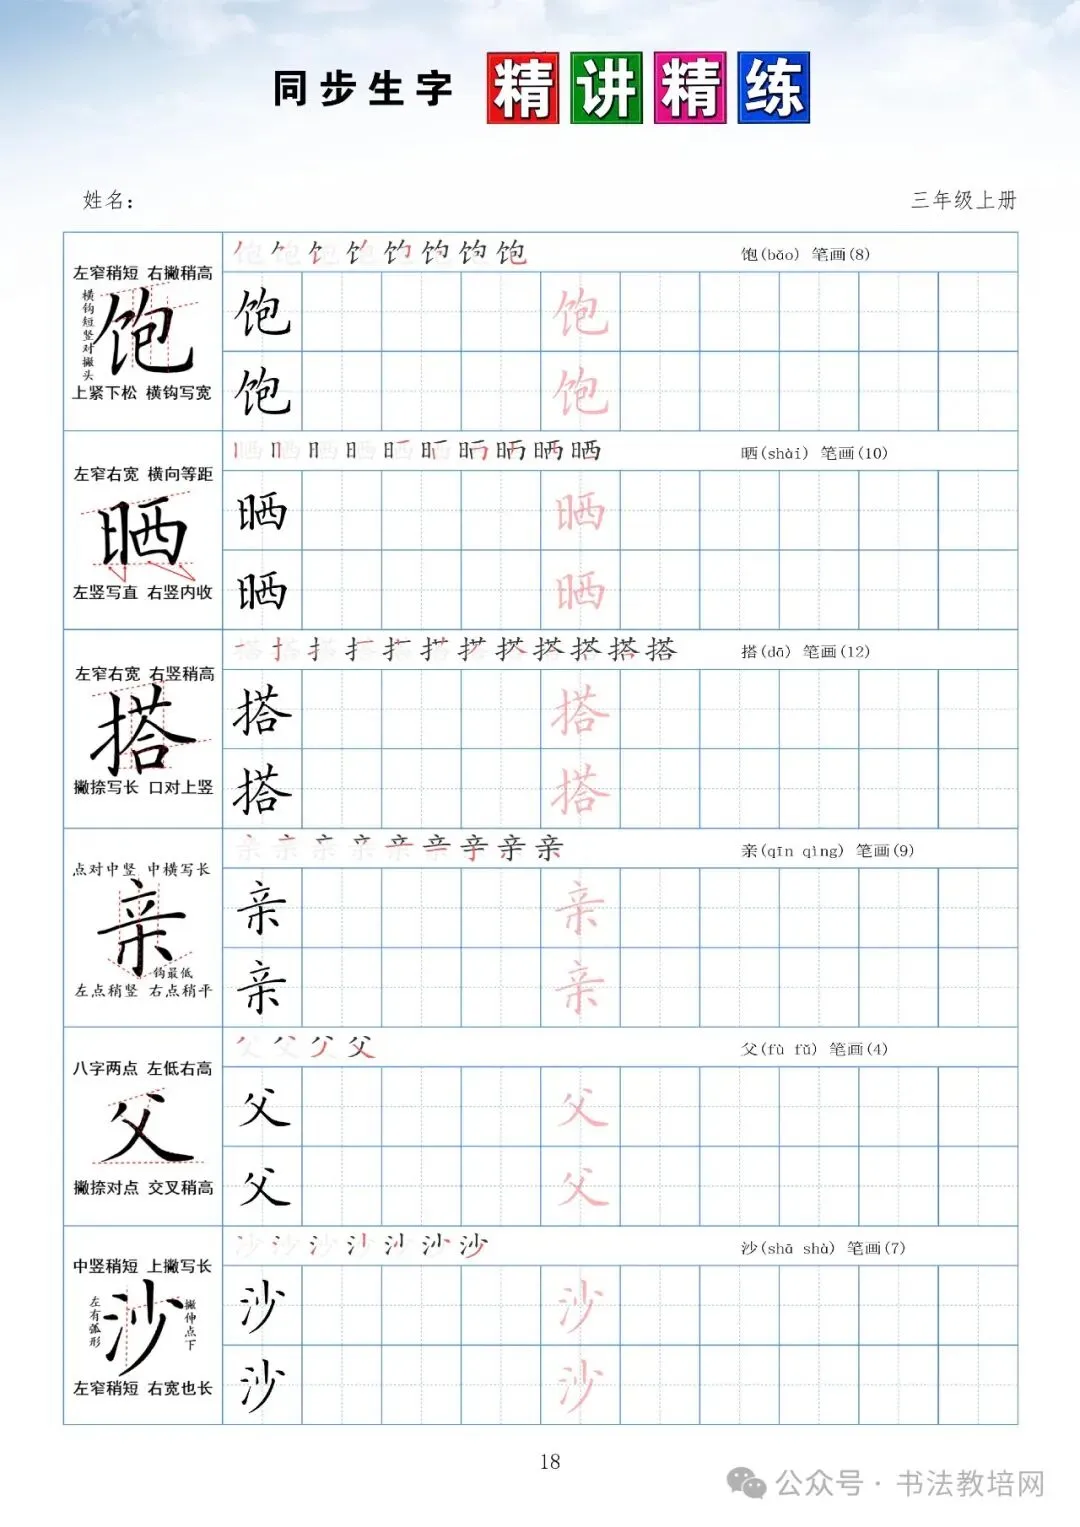 同步生字 精讲精练
姓名：
三年级上册
左窄稍短 右撇稍高
横钩短竖对撇头
饱
上紧下松 横钩写宽
饱(bǎo) 笔画(8)
饱 饱
饱 饱
左窄右宽 横向等距
晒
左竖写直 右竖内收
晒(shài) 笔画(10)
晒 晒
晒 晒
左窄右宽 右竖稍高
搭
撇捺写长 口对上竖
搭(dā) 笔画(12)
搭 搭
搭 搭
点对中竖 中横写长
亲
钩最低
左点稍竖 右点稍平
亲(qīn qìng) 笔画(9)
亲 亲
亲 亲
八字两点 左低右高
父
撇捺对点 交叉稍高
父(fù fǔ) 笔画(4)
父 父
父 父
中竖稍短 上撇写长
左有弧形
沙
撇伸点下
左窄稍短 右宽也长
沙(shā shà) 笔画(7)
沙 沙
沙 沙
18
公众号·书法教培网